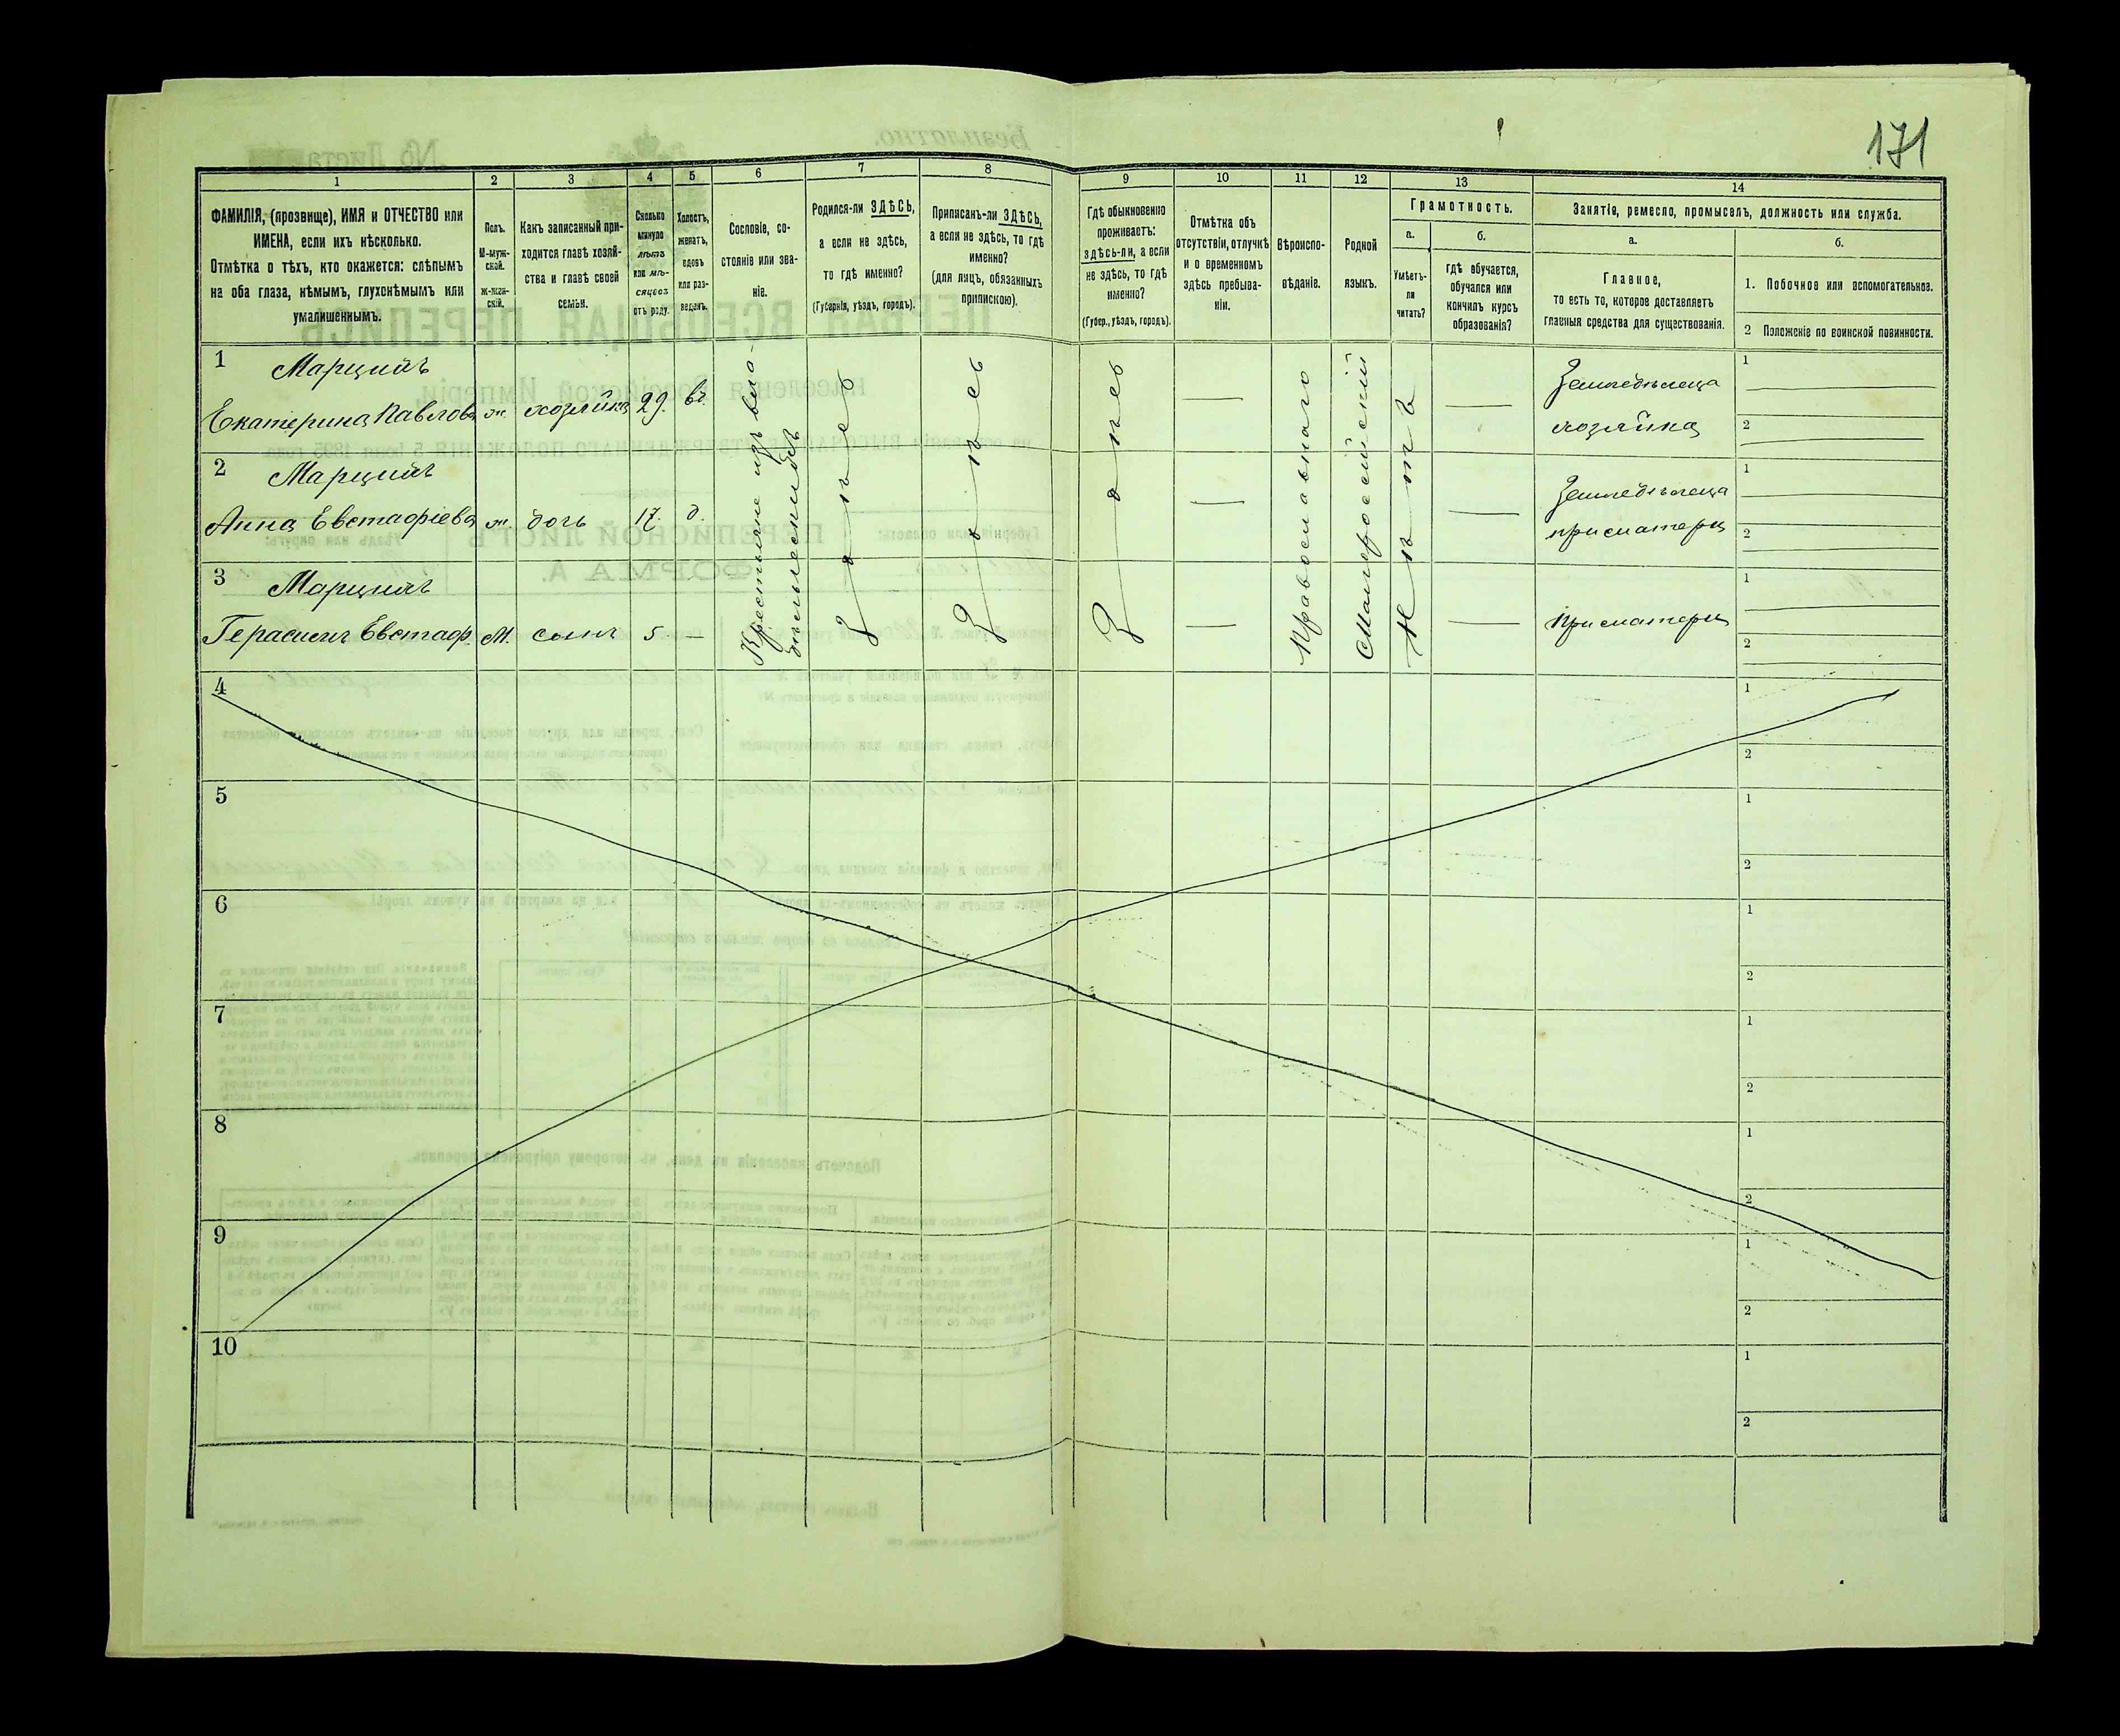 171
1
2
3
4
5
6
7
8
9
10
11
12
13
14
ФАМИЛІЯ, (прозвище), ИМЯ и ОТЧЕСТВО или
ИМЕНА, если ихъ нѣсколько.
Отмѣтка о тѣхъ, кто окажется: слѣпымъ
на оба глаза, нѣмымъ, глухонѣмымъ или
умалишеннымъ.
Полъ.
М-муж-
ской.
Ж-жен-
скій.
Какъ записанный при-
ходится главѣ хозяй-
ства и главѣ своей
семьи.
Сколько
минуло
лѣтъ
или мѣ-
сяцевъ
отъ роду.
Холостъ,
женатъ,
вдовъ
или раз-
веденъ.
Сословіе, со-
стояніе или зва-
ніе.
Родился-ли ЗДѢСЬ,
а если не здѣсь,
то гдѣ именно?
(Губернія, уѣздъ, городъ).
Приписанъ-ли ЗДѢСЬ,
а если не здѣсь, то гдѣ
именно?
(для лицъ, обязанныхъ
припискою).
Гдѣ обыкновенно
проживаетъ:
здѣсь-ли, а если
не здѣсь, то гдѣ
именно?
(Губер., уѣздъ, городъ).
Отмѣтка объ
отсутствіи, отлучкѣ
и о временномъ
здѣсь пребыва-
ніи.
Вѣроиспо-
вѣданіе.
Родной
языкъ.
Грамотность.
а.
Умѣетъ-
ли
читать?
б.
гдѣ обучается,
обучался или
кончилъ курсъ
образованія?
Занятіе, ремесло, промыселъ, должность или служба.
а.
Главное,
то есть то, которое доставляетъ
главныя средства для существованія.
б.
1. Побочное или вспомогательное.
2 Положеніе по воинской повинности.
1 Марцинъ
Екатерина Павлова ж. хозяйка 29. вд.
—
—
Земледѣлеца
хозяйка
1
2
2 Марцинъ
Анна Евстафіева ж. дочь 17. д.
—
—
Земледѣлеца
при матери
1
2
3 Марцинъ
Герасимъ Евстаф. М. сынъ 5 —
—
—
При матери
1
2
Крестьяне изъ вла-
дѣльческихъ
Здѣсь
Здѣсь
Здѣсь
Православнаго
Малороссійскій
Нѣтъ
4
1
2
5
1
2
6
1
2
7
1
2
8
1
2
9
1
2
10
1
2